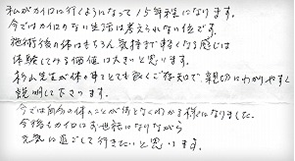 私がカイロに行くようになって15年程になります。
今ではカイロのない生活は考えられない位です。
施術後の体はもちろん気持まで軽くなる感じは
体験してみる価値は大きいと思います。
杉山先生が体の事をとても良くご存知で、親切にわかりやすく
説明して下さいます。
今では自分の体のことが何となくわかる様になりました。
今後もカイロにお世話になりながら
元気に過ごして行きたいと思います。